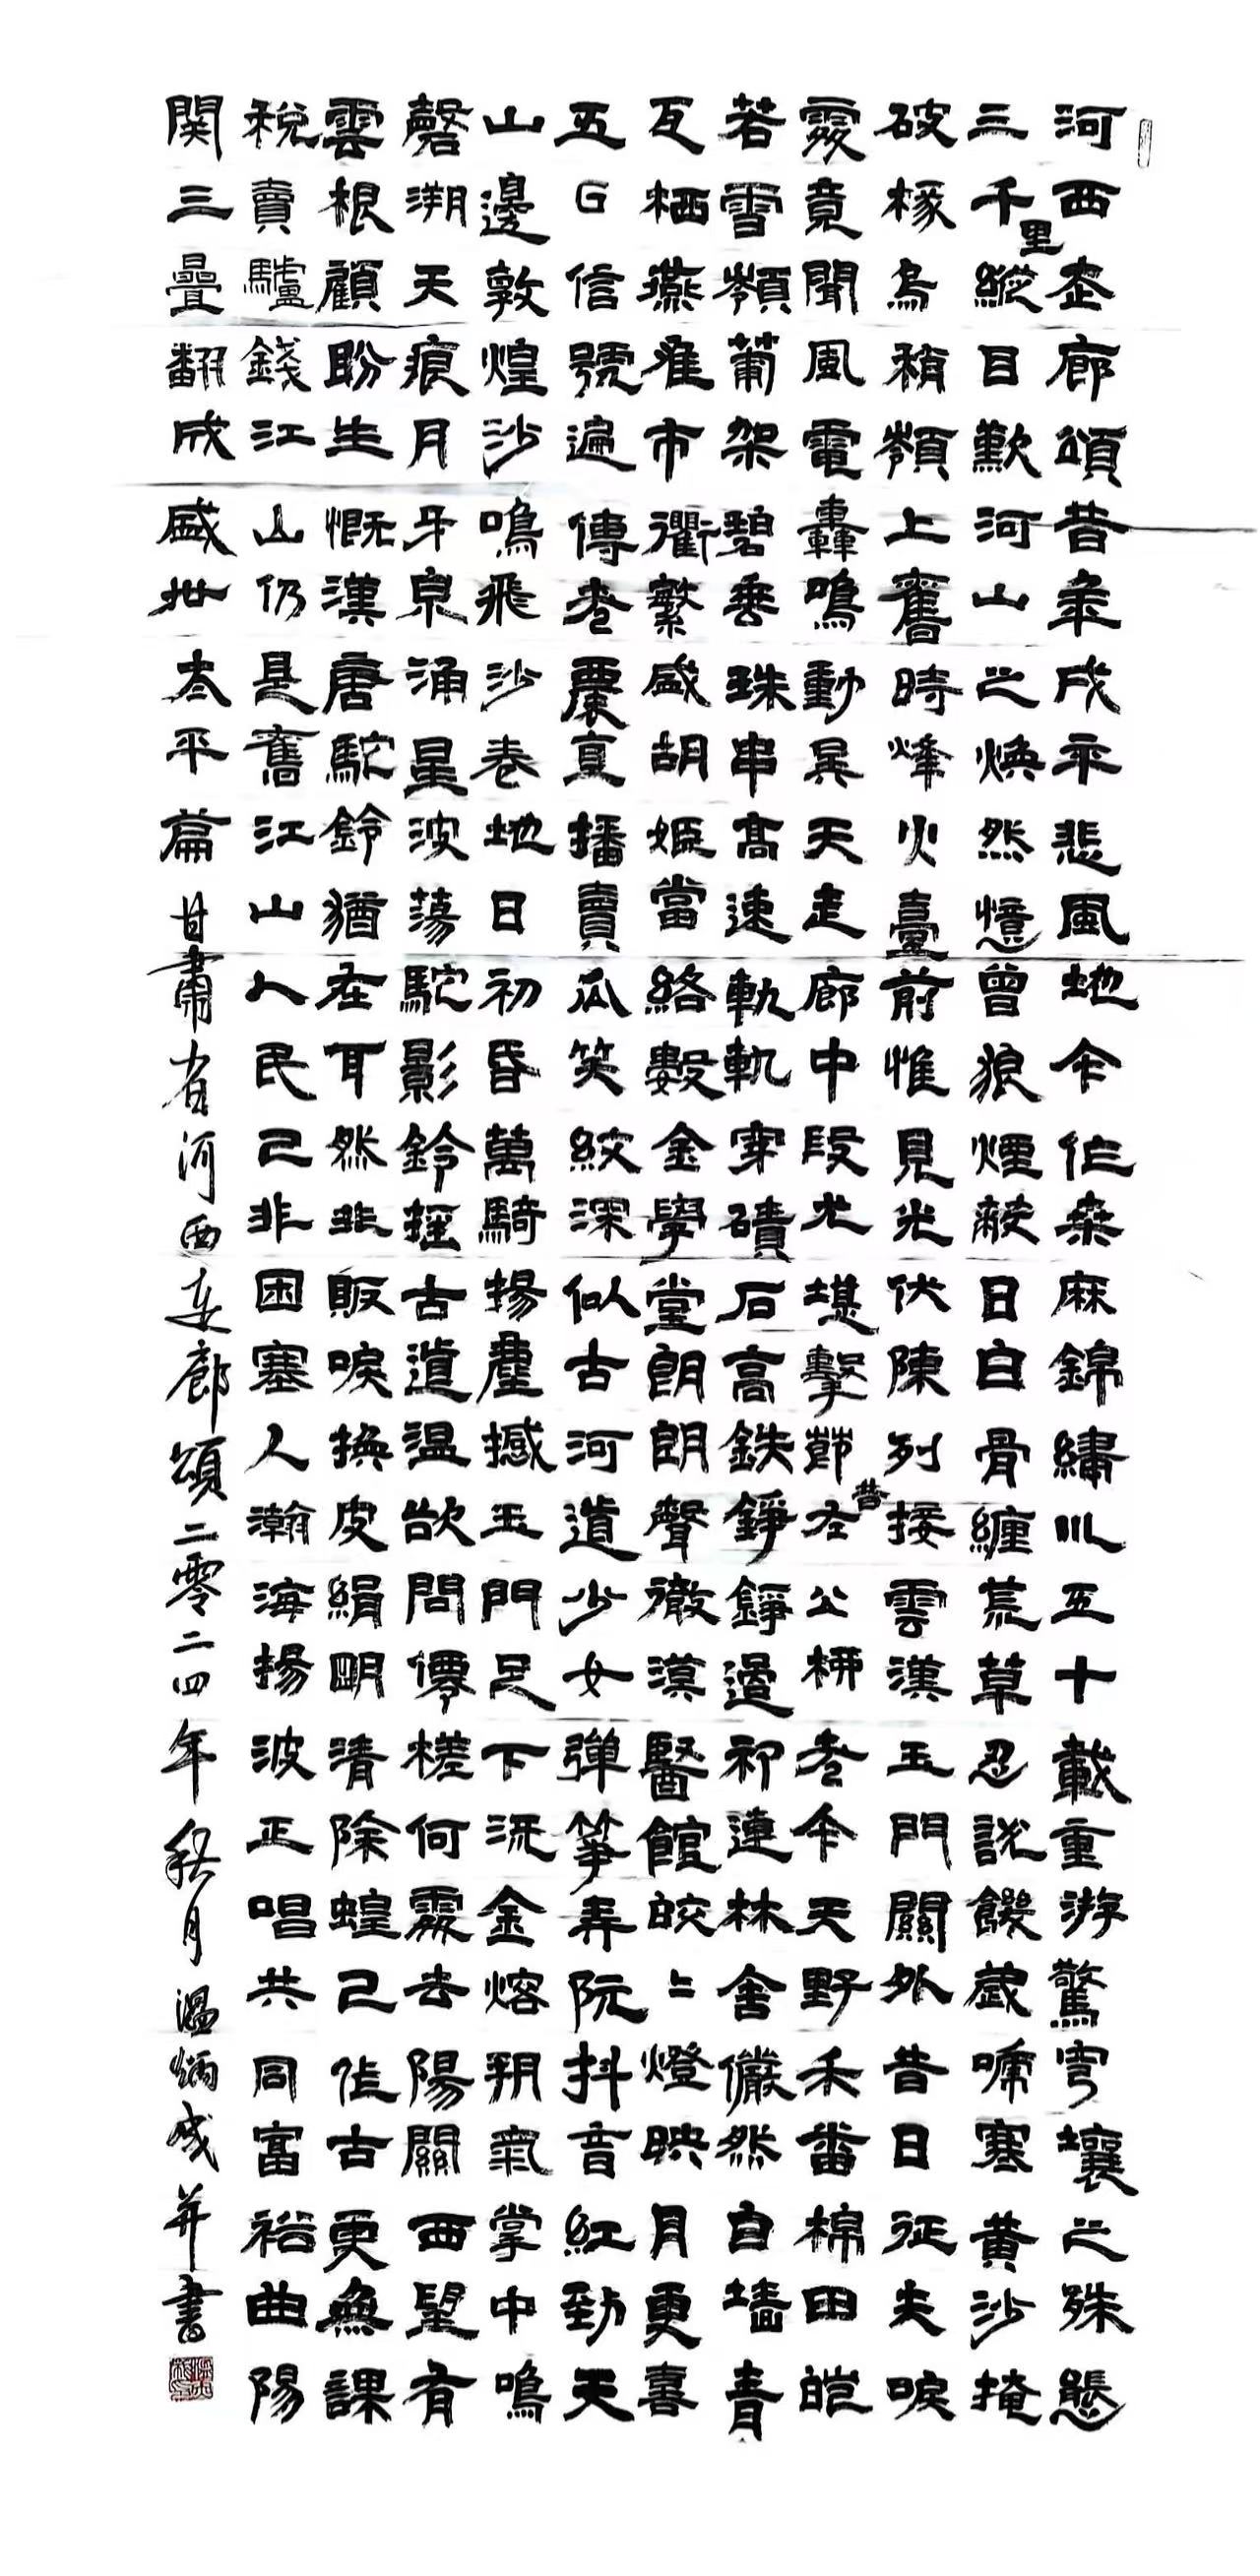 河西走廊頌昔年戍平悲風地今作桑麻錦繡川五十載重游驚穹壤之殊懸
三千里縱目歎河山之煥然憶曾狼煙蔽日白骨纏荒草忍説饑歲啼寒黄沙掩
破椽烏鞘嶺上舊時烽火臺前惟見光伏陳列接雲漢玉門關外昔日征夫唳
處竟聞風電轟鳴動昊天走廊中段尤堪擊節昔左公柳老今天野禾番棉田皚
若雪嶺葡架碧垂珠串高速軌軌穿磧石高鉄錚錚過祁連林舍儼然白墙青
瓦栖燕雀市衢繁盛胡姬當絡數金學堂朗朗聲徹漠醫館皎皎燈映月更喜
五G信號遍傳老粟直播賣瓜笑紋深似古河道少女弹箏弄阮抖音紅勁天
山邊敦煌沙鳴飛沙卷地日初昏萬騎揚塵撼玉門足下流金熔朔氣掌中鳴
磬溯天痕月牙泉涌星波蕩駝影鈴摇古道温欲問儜槎何處去陽關西望有
雲根顧盼生慨漢唐駝鈴猶在耳然非販唳换皮絹明清除蝗已作古更無課
税賣驢錢江山仍是舊江山人民已非困塞人瀚海揚波正唱共同富裕曲陽
関三疊翻成盛世太平篇甘肅省河西走廊頌二零二四年秋月温炳成并書